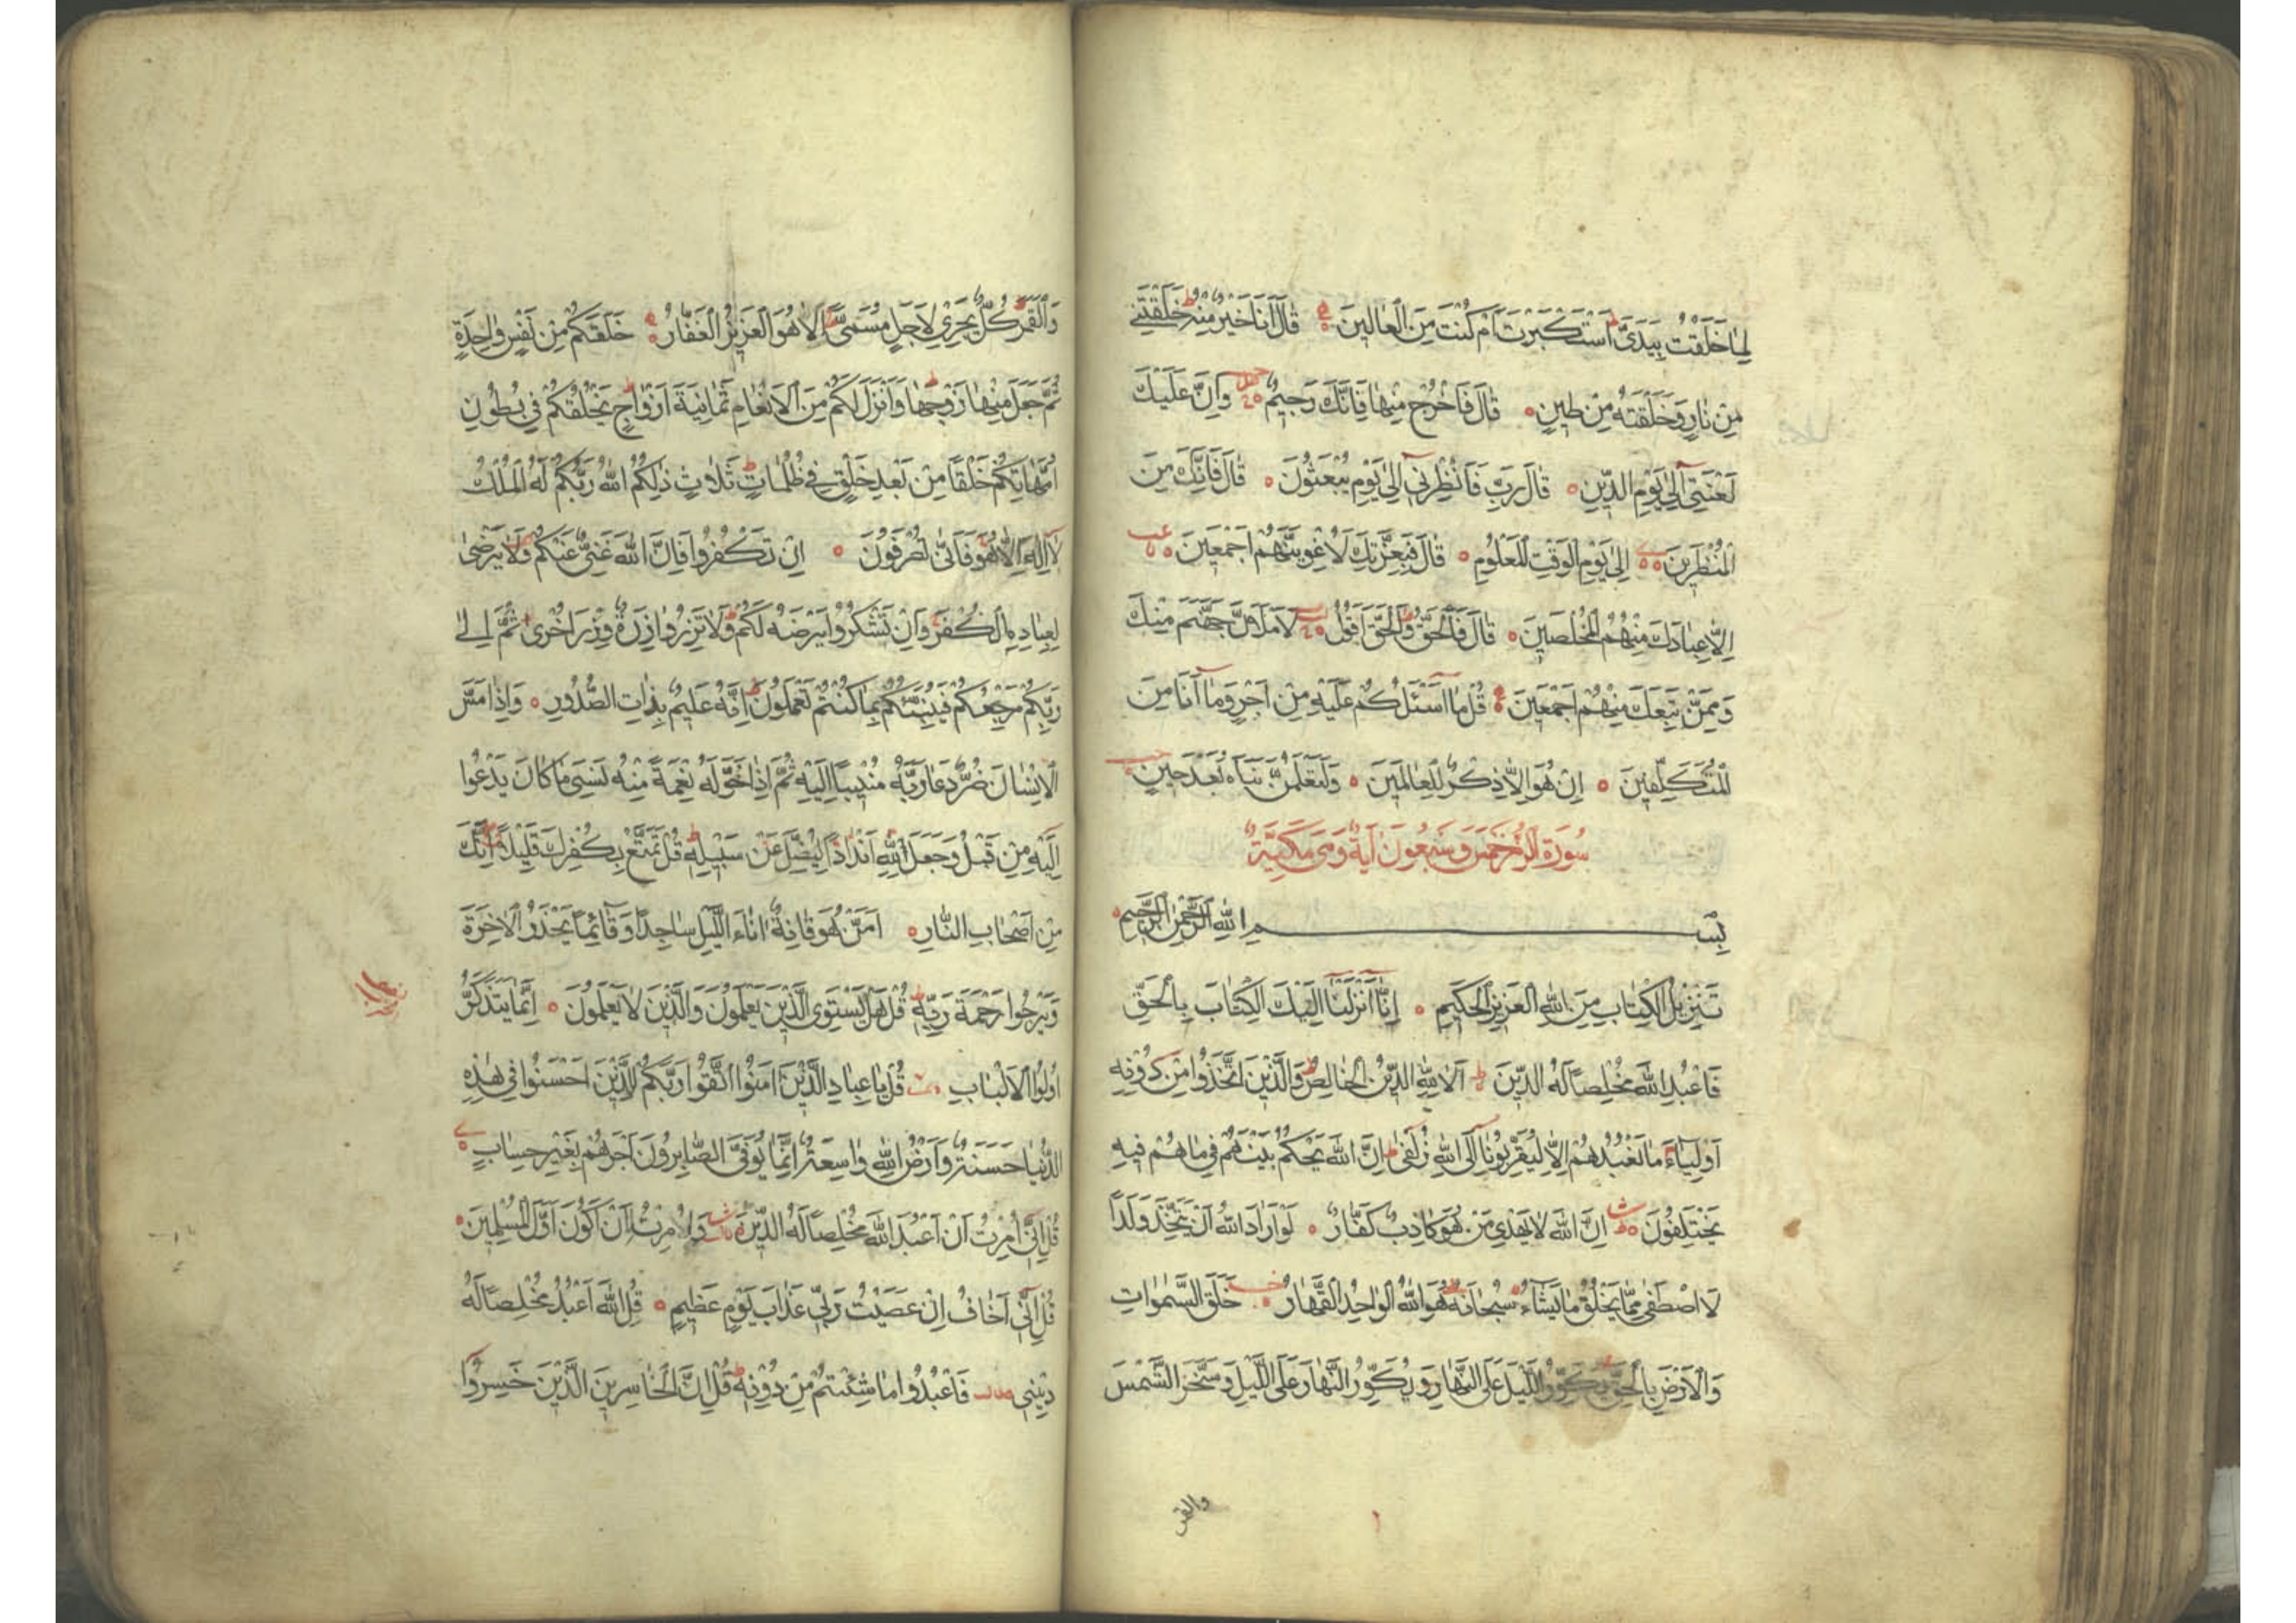 لِمَا خَلَقْتُ بِيَدَىَّ اَسْتَكْبَرْتَ اَمْ كُنْتَ مِنَ الْعَالِينَ قَالَ اَنَا خَيْرٌ مِنْهُ خَلَقْتَنِي
مِنْ نَارٍ وَخَلَقْتَهُ مِنْ طِينٍ قَالَ فَاخْرُجْ مِنْهَا فَاِنَّكَ رَجِيمٌ وَاِنَّ عَلَيْكَ
لَعْنَتِى اِلٰى يَوْمِ الدِّينِ قَالَ رَبِّ فَاَنْظِرْنِى اِلٰى يَوْمِ يُبْعَثُونَ قَالَ فَاِنَّكَ مِنَ
الْمُنْظَرِينَ اِلٰى يَوْمِ الْوَقْتِ الْمَعْلُومِ قَالَ فَبِعِزَّتِكَ لَاُغْوِيَنَّهُمْ اَجْمَعِينَ
اِلَّا عِبَادَكَ مِنْهُمُ الْمُخْلَصِينَ قَالَ فَالْحَقُّ وَالْحَقَّ اَقُولُ لَاَمْلَاَنَّ جَهَنَّمَ مِنْكَ
وَمِمَّنْ تَبِعَكَ مِنْهُمْ اَجْمَعِينَ قُلْ مَا اَسْئَلُكُمْ عَلَيْهِ مِنْ اَجْرٍ وَمَا اَنَا مِنَ
الْمُتَكَلِّفِينَ اِنْ هُوَ اِلَّا ذِكْرٌ لِلْعَالَمِينَ وَلَتَعْلَمُنَّ نَبَاَهُ بَعْدَ حِينٍ
سُورَةُ الزُّمَرِ خَمْسٌ وَسَبْعُونَ آيَةً وَهِىَ مَكِّيَّةٌ
بِسْمِ اللّٰهِ الرَّحْمٰنِ الرَّحِيمِ
تَنْزِيلُ الْكِتَابِ مِنَ اللّٰهِ الْعَزِيزِ الْحَكِيمِ اِنَّا اَنْزَلْنَا اِلَيْكَ الْكِتَابَ بِالْحَقِّ
فَاعْبُدِ اللّٰهَ مُخْلِصًا لَهُ الدِّينَ اَلَا لِلّٰهِ الدِّينُ الْخَالِصُ وَالَّذِينَ اتَّخَذُوا مِنْ دُونِهِ
اَوْلِيَاءَ مَا نَعْبُدُهُمْ اِلَّا لِيُقَرِّبُونَا اِلَى اللّٰهِ زُلْفٰى اِنَّ اللّٰهَ يَحْكُمُ بَيْنَهُمْ فِى مَا هُمْ فِيهِ
يَخْتَلِفُونَ اِنَّ اللّٰهَ لَا يَهْدِى مَنْ هُوَ كَاذِبٌ كَفَّارٌ لَوْ اَرَادَ اللّٰهُ اَنْ يَتَّخِذَ وَلَدًا
لَاصْطَفٰى مِمَّا يَخْلُقُ مَا يَشَاءُ سُبْحَانَهُ هُوَ اللّٰهُ الْوَاحِدُ الْقَهَّارُ خَلَقَ السَّمٰوَاتِ
وَالْاَرْضَ بِالْحَقِّ يُكَوِّرُ اللَّيْلَ عَلَى النَّهَارِ وَيُكَوِّرُ النَّهَارَ عَلَى اللَّيْلِ وَسَخَّرَ الشَّمْسَ
والقمر
وَالْقَمَرَ كُلٌّ يَجْرِى لِاَجَلٍ مُسَمًّى اَلَا هُوَ الْعَزِيزُ الْغَفَّارُ خَلَقَكُمْ مِنْ نَفْسٍ وَاحِدَةٍ
ثُمَّ جَعَلَ مِنْهَا زَوْجَهَا وَاَنْزَلَ لَكُمْ مِنَ الْاَنْعَامِ ثَمَانِيَةَ اَزْوَاجٍ يَخْلُقُكُمْ فِى بُطُونِ
اُمَّهَاتِكُمْ خَلْقًا مِنْ بَعْدِ خَلْقٍ فِى ظُلُمَاتٍ ثَلَاثٍ ذٰلِكُمُ اللّٰهُ رَبُّكُمْ لَهُ الْمُلْكُ
لَا اِلٰهَ اِلَّا هُوَ فَاَنّٰى تُصْرَفُونَ اِنْ تَكْفُرُوا فَاِنَّ اللّٰهَ غَنِىٌّ عَنْكُمْ وَلَا يَرْضٰى
لِعِبَادِهِ الْكُفْرَ وَاِنْ تَشْكُرُوا يَرْضَهُ لَكُمْ وَلَا تَزِرُ وَازِرَةٌ وِزْرَ اُخْرٰى ثُمَّ اِلٰى
رَبِّكُمْ مَرْجِعُكُمْ فَيُنَبِّئُكُمْ بِمَا كُنْتُمْ تَعْمَلُونَ اِنَّهُ عَلِيمٌ بِذَاتِ الصُّدُورِ وَاِذَا مَسَّ
الْاِنْسَانَ ضُرٌّ دَعَا رَبَّهُ مُنِيبًا اِلَيْهِ ثُمَّ اِذَا خَوَّلَهُ نِعْمَةً مِنْهُ نَسِىَ مَا كَانَ يَدْعُوا
اِلَيْهِ مِنْ قَبْلُ وَجَعَلَ لِلّٰهِ اَنْدَادًا لِيُضِلَّ عَنْ سَبِيلِهِ قُلْ تَمَتَّعْ بِكُفْرِكَ قَلِيلًا اِنَّكَ
مِنْ اَصْحَابِ النَّارِ اَمَّنْ هُوَ قَانِتٌ اٰنَاءَ اللَّيْلِ سَاجِدًا وَقَائِمًا يَحْذَرُ الْاٰخِرَةَ
وَيَرْجُوا رَحْمَةَ رَبِّهِ قُلْ هَلْ يَسْتَوِى الَّذِينَ يَعْلَمُونَ وَالَّذِينَ لَا يَعْلَمُونَ اِنَّمَا يَتَذَكَّرُ
اُولُوا الْاَلْبَابِ قُلْ يَا عِبَادِ الَّذِينَ اٰمَنُوا اتَّقُوا رَبَّكُمْ لِلَّذِينَ اَحْسَنُوا فِى هٰذِهِ
الدُّنْيَا حَسَنَةٌ وَاَرْضُ اللّٰهِ وَاسِعَةٌ اِنَّمَا يُوَفَّى الصَّابِرُونَ اَجْرَهُمْ بِغَيْرِ حِسَابٍ
قُلْ اِنِّى اُمِرْتُ اَنْ اَعْبُدَ اللّٰهَ مُخْلِصًا لَهُ الدِّينَ وَاُمِرْتُ لِاَنْ اَكُونَ اَوَّلَ الْمُسْلِمِينَ
قُلْ اِنِّى اَخَافُ اِنْ عَصَيْتُ رَبِّى عَذَابَ يَوْمٍ عَظِيمٍ قُلِ اللّٰهَ اَعْبُدُ مُخْلِصًا لَهُ
دِينِى فَاعْبُدُوا مَا شِئْتُمْ مِنْ دُونِهِ قُلْ اِنَّ الْخَاسِرِينَ الَّذِينَ خَسِرُوا